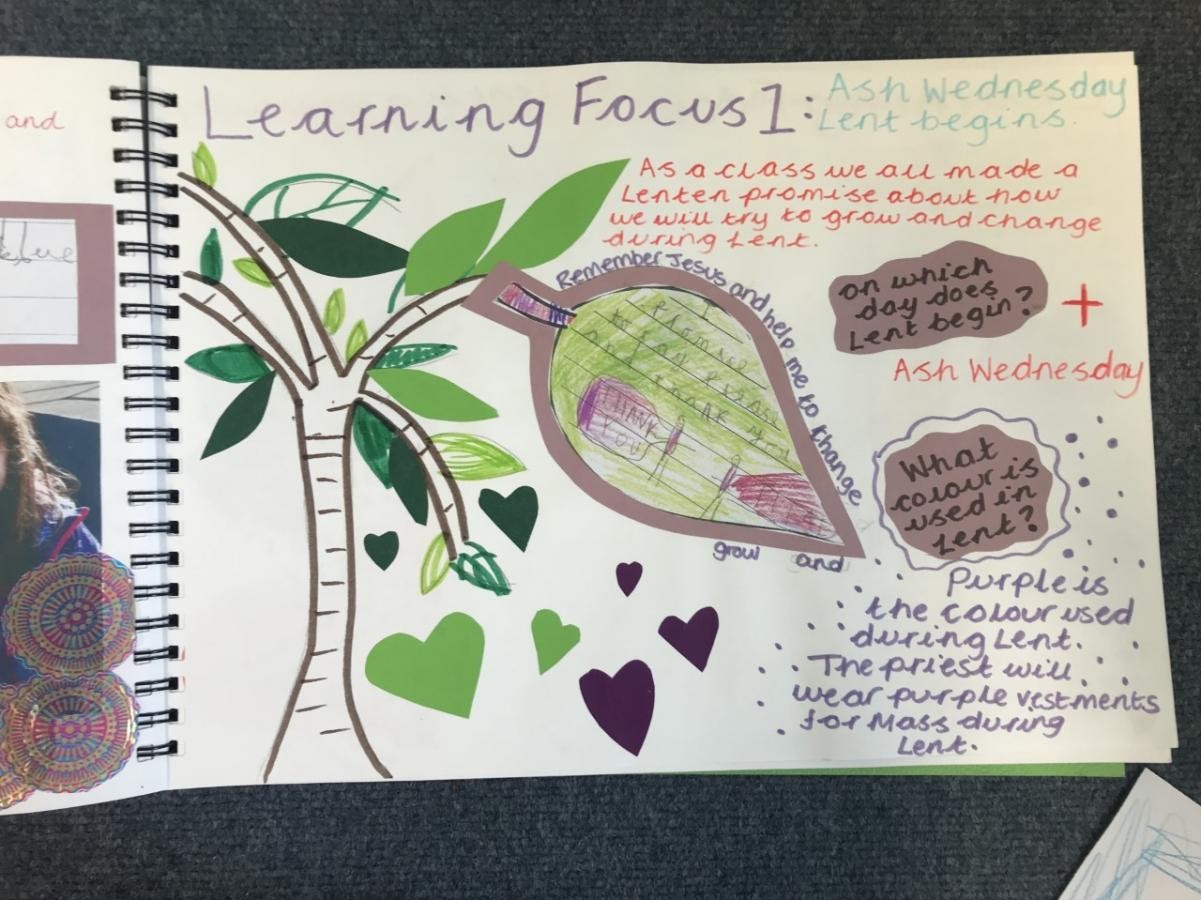 and
Learning Focus 1:
Ash Wednesday
Lent begins.
As a class we all made a
Lenten promise about how
we will try to grow and change
during Lent.
Remember Jesus and help me to change
grow and
I
Promise
to say please
and thank you
THANK
YOU
on which
day does
Lent begin?
Ash Wednesday
What
colour is
used in
Lent?
Purple is
the colour used
during Lent.
The priest will
wear purple vestments
for Mass during
Lent.